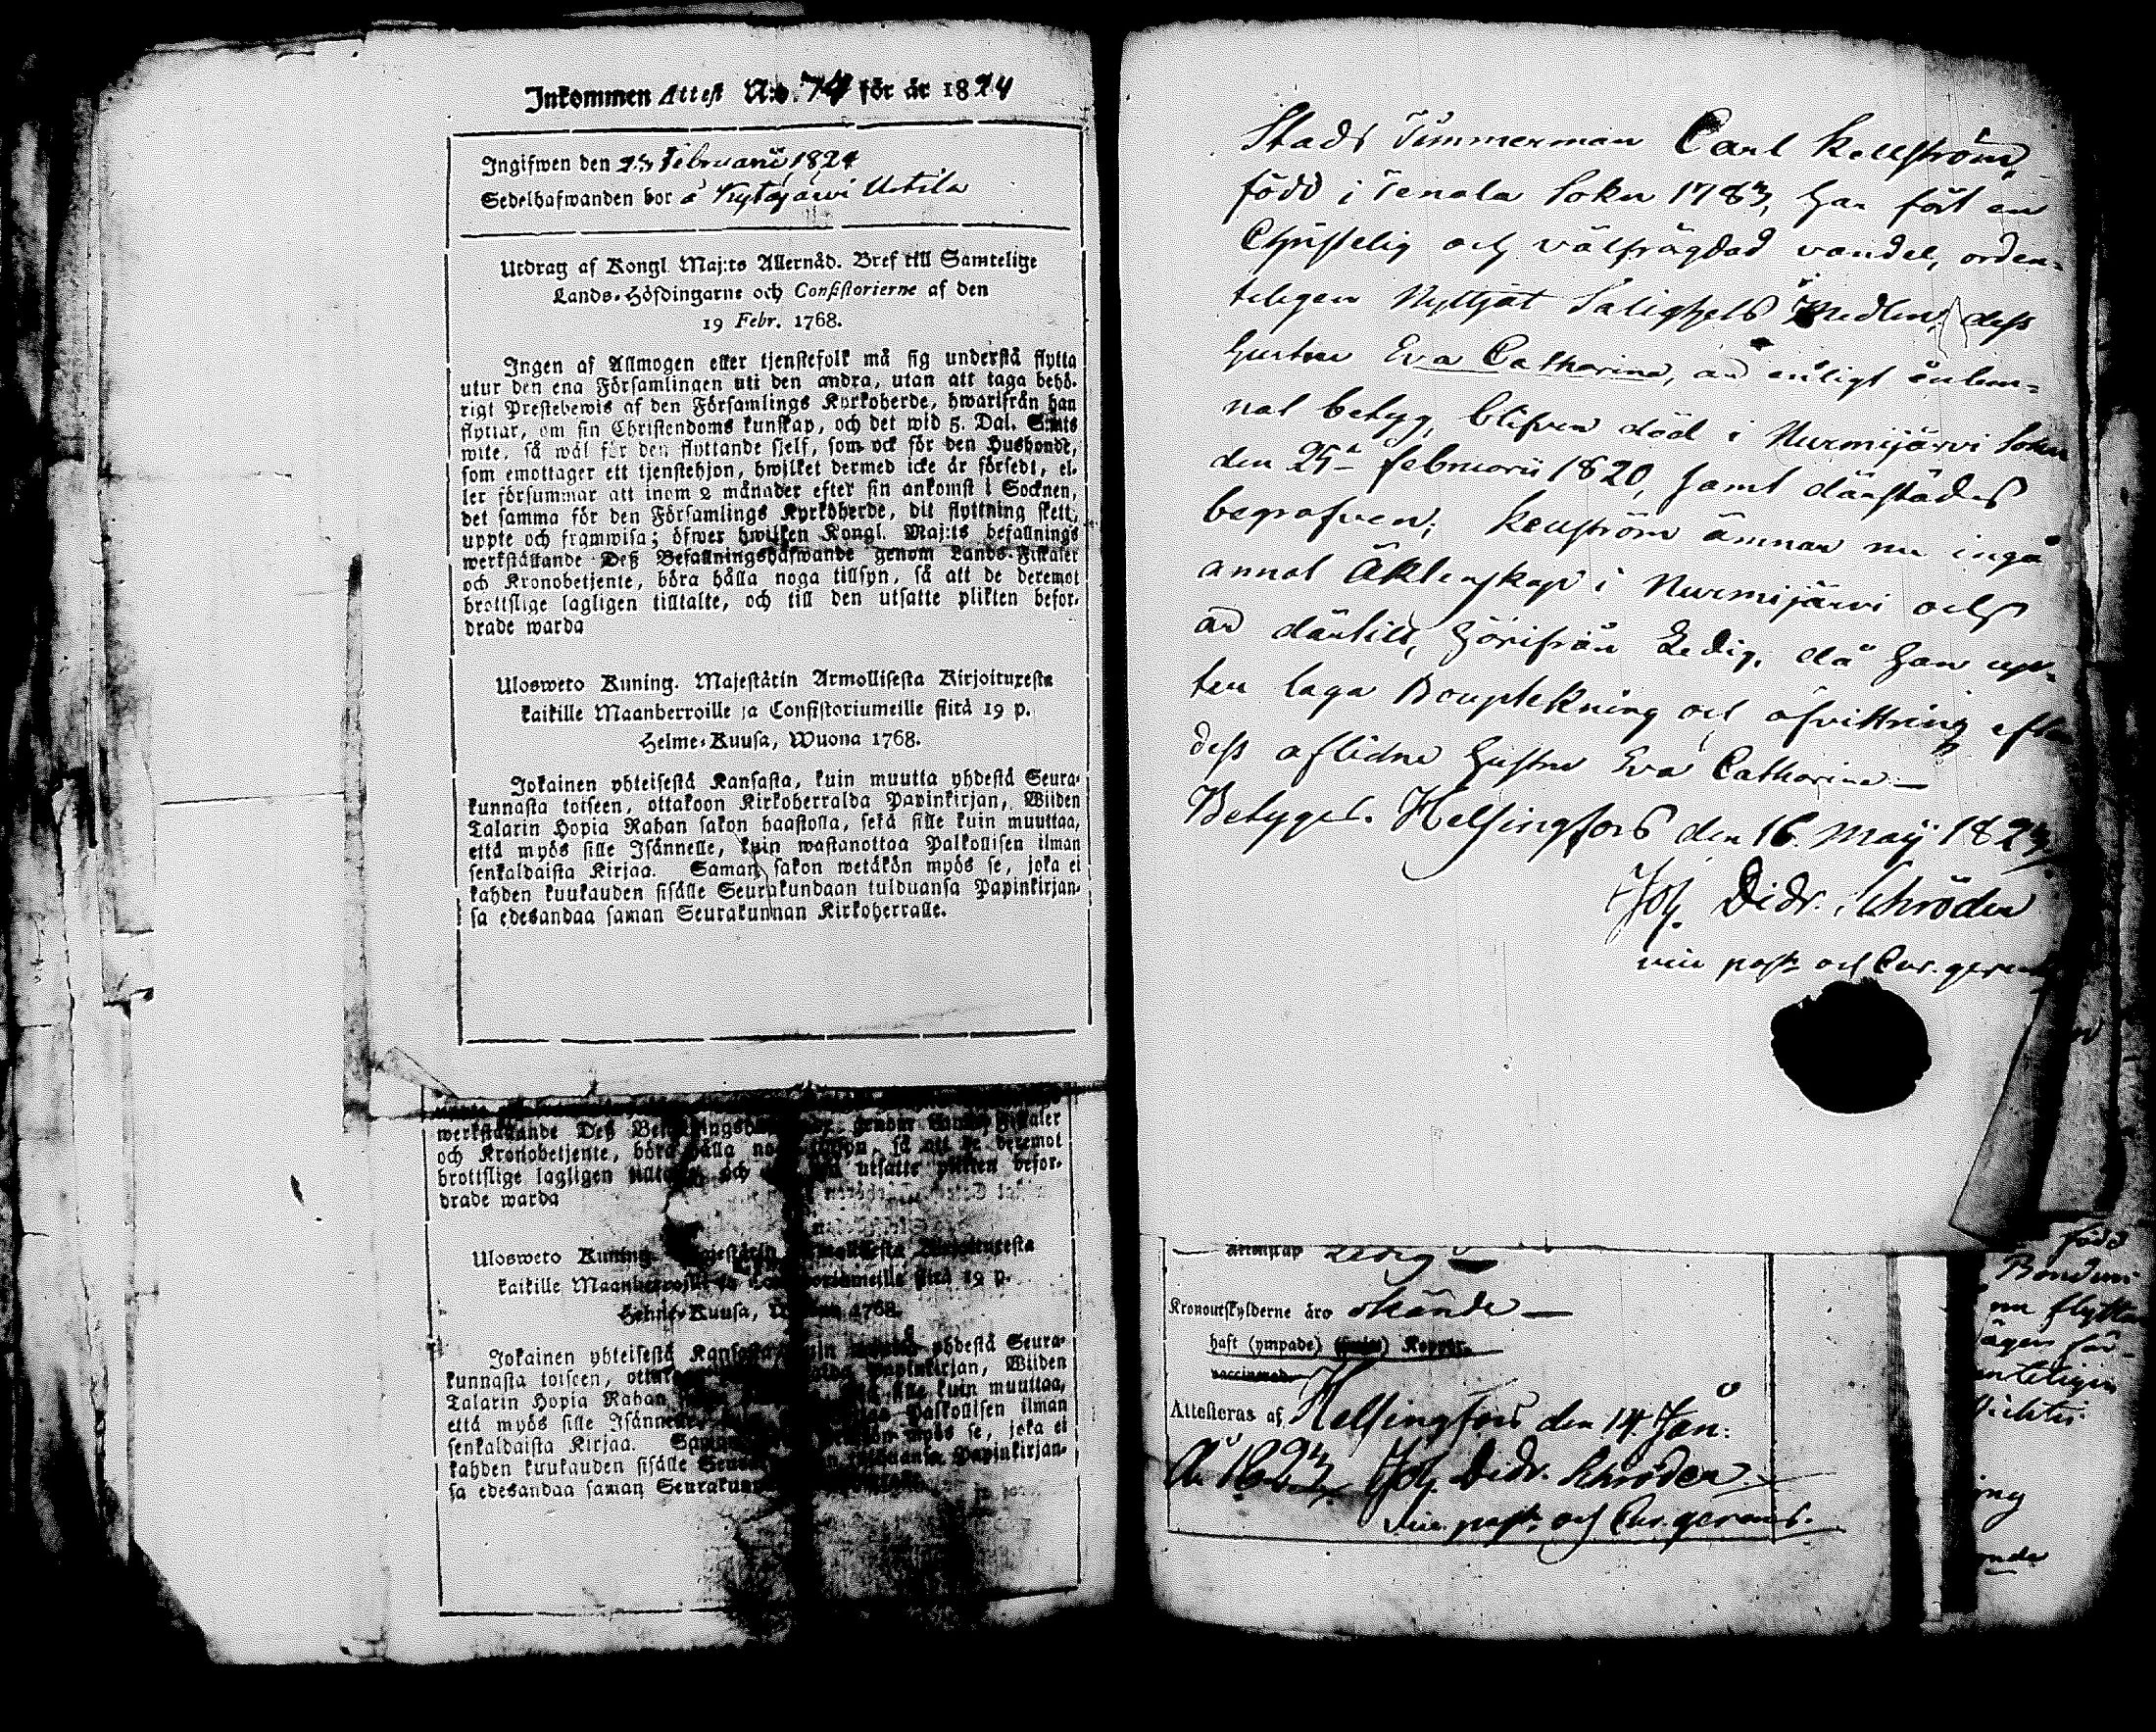 Inkommen Attest N:o. 74 för år 1824
Ingifwen den 25 Februarii 1824
Sedelhafwanden bor å Kytäjärvi
Utdrag af Kongl. Maj:ts Allernåd. Bref till Samtelige
Lands-Höfdingarne och Consistorierne af den
19 Febr. 1768.
Ingen af Allmogen eller tjenstefolk må sig understå flytta
utur den ena Församlingen uti den andra, utan att taga behö-
rigt Prestebewis af den Församlings Kyrkoherde, hwarifrån han
flyttar, om sin Christendoms kunskap, och det wid 5. Dal. S:mts
wite, så wäl för den flyttande sjelf, som ock för den Husbonde,
som emottager ett tjenstehjon, hwilket dermed icke är försedt, el-
ler försummar att inom 2 månader efter sin ankomst i Socknen,
det samma för den Församlings Kyrkoherde, dit flyttning skett,
uppte och framwisa; öfwer hwilken Kongl. Maj:ts befallnings
werkställande Deß Befallningshafwande genom Lands-Fiskaler
och Kronobetjente, böra hålla noga tillsyn, så att de deremot
brottslige lagligen tilltalte, och till den utsatte plikten befor-
drade warda
Ulosweto Kuning. Majestätin Armollisesta Kirjoituxesta
kaikille Maanherroille ja Consistoriumeille siitä 19 p.
Helme-Kuusa, Wuona 1768.
Jokainen yhteisestä Kansasta, kuin muutta yhdestä Seura-
kunnasta toiseen, ottakoon Kirkoherralda Papinkirjan, Wiiden
Talarin Hopia Rahan sakon haastolla, sekä sille kuin muuttaa,
että myös sille Isännelle, kuin wastanottaa Palkollisen ilman
senkaldaista Kirjaa. Saman sakon wetäkön myös se, joka ei
kahden kuukauden sisälle Seurakundaan tulduansa Papinkirjan-
sa edesandaa saman Seurakunnan Kirkoherralle.
werkställande Deß genom Fiskaler
och Kronobetjente, böra hålla så att de deremot
brottslige lagligen och utsatte plikten befor-
drade warda
Ulosweto Kuning. Majestätin Armollisesta Kirjoituxesta
kaikille Maanherroille ja Consistoriumeille siitä 19 p.
Helme-Kuusa, Wuona 1768.
Jokainen yhteisestä Kansasta, kuin yhdestä Seura-
kunnasta toiseen, Papinkirjan, Wiiden
Talarin Hopia Rahan sille kuin muuttaa,
että myös sille Isännelle Palkollisen ilman
senkaldaista Kirjaa. myös se, joka ei
kahden kuukauden sisälle Papinkirjan-
sa edesandaa saman
Stads Timmerman Carl Kellström,
född i Tenala Sokn 1783, har fört en
Christelig och välfrägdad vandel, orden-
teligen Nyttjat Salighets Medlen; dess
hustru Eva Catharina, är enligt inläm-
nat betyg, blifven död i Nurmijärvi Sokn
den 25 februarii 1820, samt därstädes
begrafven; Kellström ämnar nu ingå
annat Äktenskap i Nurmijärvi och
är därtill, härifrån Ledig, då han upp-
ter laga Bouptekning och afvittring efter
dess aflidne hustru Eva Catharina.—
Betygat. Helsingfors den 16. Maij 1823
Joh. Didr. Schröder
vice past. och Cur. gerens
Äktenskap Ledig —
Kronoutskylderne äro okände —
haft (ympade) Koppor.
vaccinerad
Attesteras af, Helsingfors den 14. Jan:
År 1823. Joh. Didr. Schröder.
vice. past. och Cur. gerens.
född
nu flytta